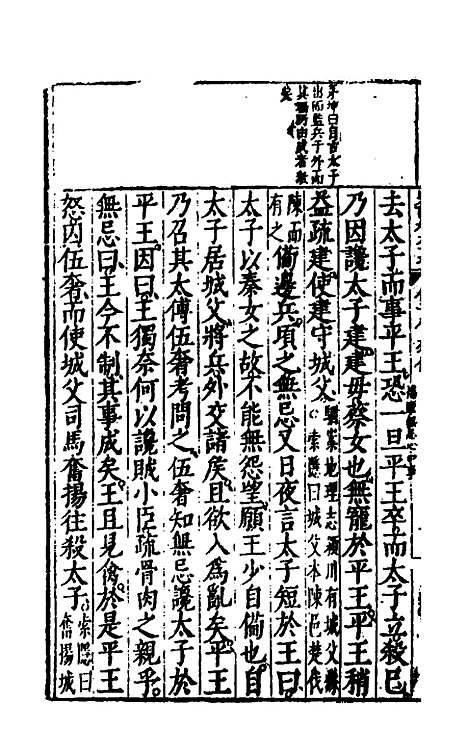 茅坤曰自古太子
出而監兵于外而
其禍
矣
去太子而事平王恐一旦平王卒而太子立殺己
乃因讒太子建建母蔡女也無寵於平王平王稍
益疏建使建守城父駰案地理志潁川有城父縣索隱曰城父本陳邑楚伐
陳而有之備邊兵頃之無忌又日夜言太子短於王曰
太子以秦女之故不能無怨望願王少自備也自
太子居城父將兵外交諸侯且欲入爲亂矣平王
乃召其太傅伍奢考問之伍奢知無忌讒太子於
平王因曰王獨奈何以讒賊小臣疏骨肉之親乎
無忌曰王今不制其事成矣王且見禽於是平王
怒囚伍奢而使城父司馬奮揚往殺太子索隱曰奮揚城